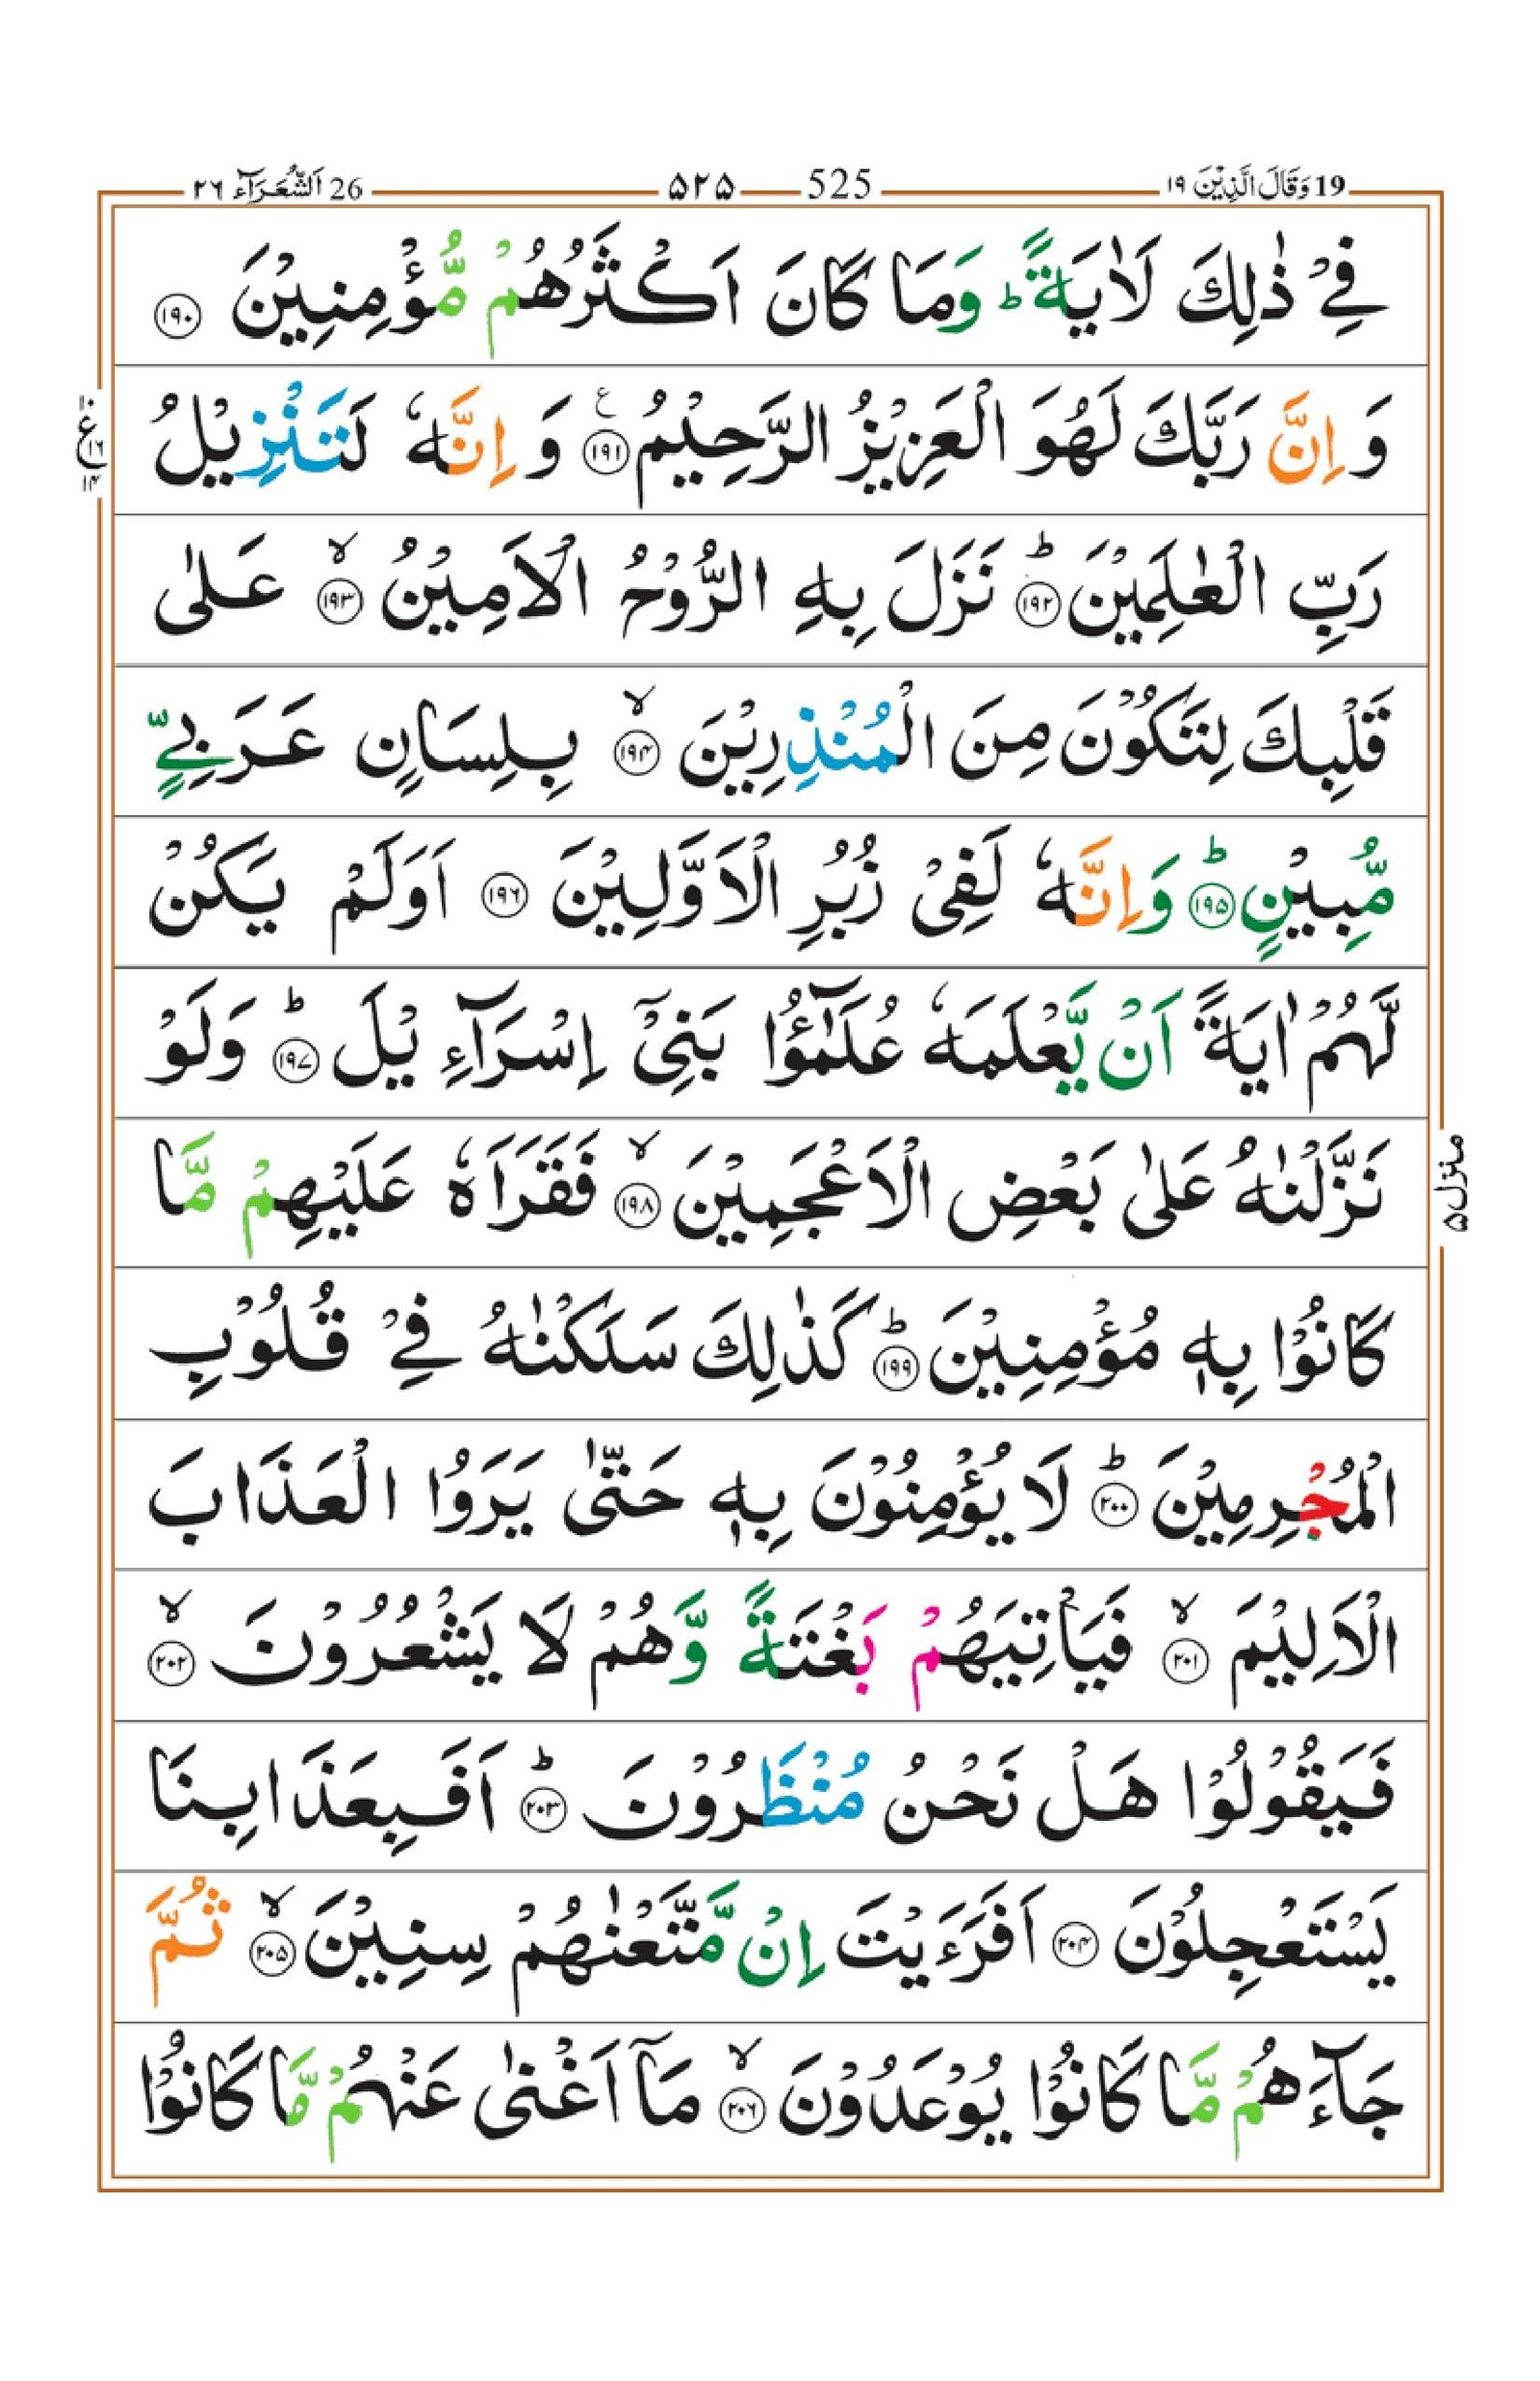 19 وَقَالَ الَّذِيْنَ ١٩ 525 ۵۲۵ 26 اَلشُّعَرَآء ٢٦
فِيْ ذٰلِكَ لَاٰيَةً ؕ وَمَا كَانَ اَكْثَرُهُمْ مُّؤْمِنِيْنَ ﴿۱۹۰﴾
وَ اِنَّ رَبَّكَ لَهُوَ الْعَزِيْزُ الرَّحِيْمُ ﴿۱۹۱﴾ ع وَ اِنَّهٗ لَتَنْزِيْلُ
رَبِّ الْعٰلَمِيْنَ ؕ﴿۱۹۲﴾ نَزَلَ بِهِ الرُّوْحُ الْاَمِيْنُ ۙ﴿۱۹۳﴾ عَلٰى
قَلْبِكَ لِتَكُوْنَ مِنَ الْمُنْذِرِيْنَ ۙ﴿۱۹۴﴾ بِلِسَانٍ عَرَبِيٍّ
مُّبِيْنٍ ؕ﴿۱۹۵﴾ وَاِنَّهٗ لَفِىْ زُبُرِ الْاَوَّلِيْنَ ﴿۱۹۶﴾ اَوَلَمْ يَكُنْ
لَّهُمْ اٰيَةً اَنْ يَّعْلَمَهٗ عُلَمٰٓؤُا بَنِىْۤ اِسْرَآءِيْلَ ؕ﴿۱۹۷﴾ وَلَوْ
نَزَّلْنٰهُ عَلٰى بَعْضِ الْاَعْجَمِيْنَ ۙ﴿۱۹۸﴾ فَقَرَاَهٗ عَلَيْهِمْ مَّا
كَانُوْا بِهٖ مُؤْمِنِيْنَ ؕ﴿۱۹۹﴾ كَذٰلِكَ سَلَكْنٰهُ فِيْ قُلُوْبِ
الْمُجْرِمِيْنَ ؕ﴿۲۰۰﴾ لَا يُؤْمِنُوْنَ بِهٖ حَتّٰى يَرَوُا الْعَذَابَ
الْاَلِيْمَ ۙ﴿۲۰۱﴾ فَيَاْتِيَهُمْ بَغْتَةً وَّهُمْ لَا يَشْعُرُوْنَ ۙ﴿۲۰۲﴾
فَيَقُوْلُوْا هَلْ نَحْنُ مُنْظَرُوْنَ ؕ﴿۲۰۳﴾ اَفَبِعَذَابِنَا
يَسْتَعْجِلُوْنَ ﴿۲۰۴﴾ اَفَرَءَيْتَ اِنْ مَّتَّعْنٰهُمْ سِنِيْنَ ۙ﴿۲۰۵﴾ ثُمَّ
جَآءَهُمْ مَّا كَانُوْا يُوْعَدُوْنَ ۙ﴿۲۰۶﴾ مَاۤ اَغْنٰى عَنْهُمْ مَّا كَانُوْا
۱۰ ع ۱۶ ۱۴
منزل ۵